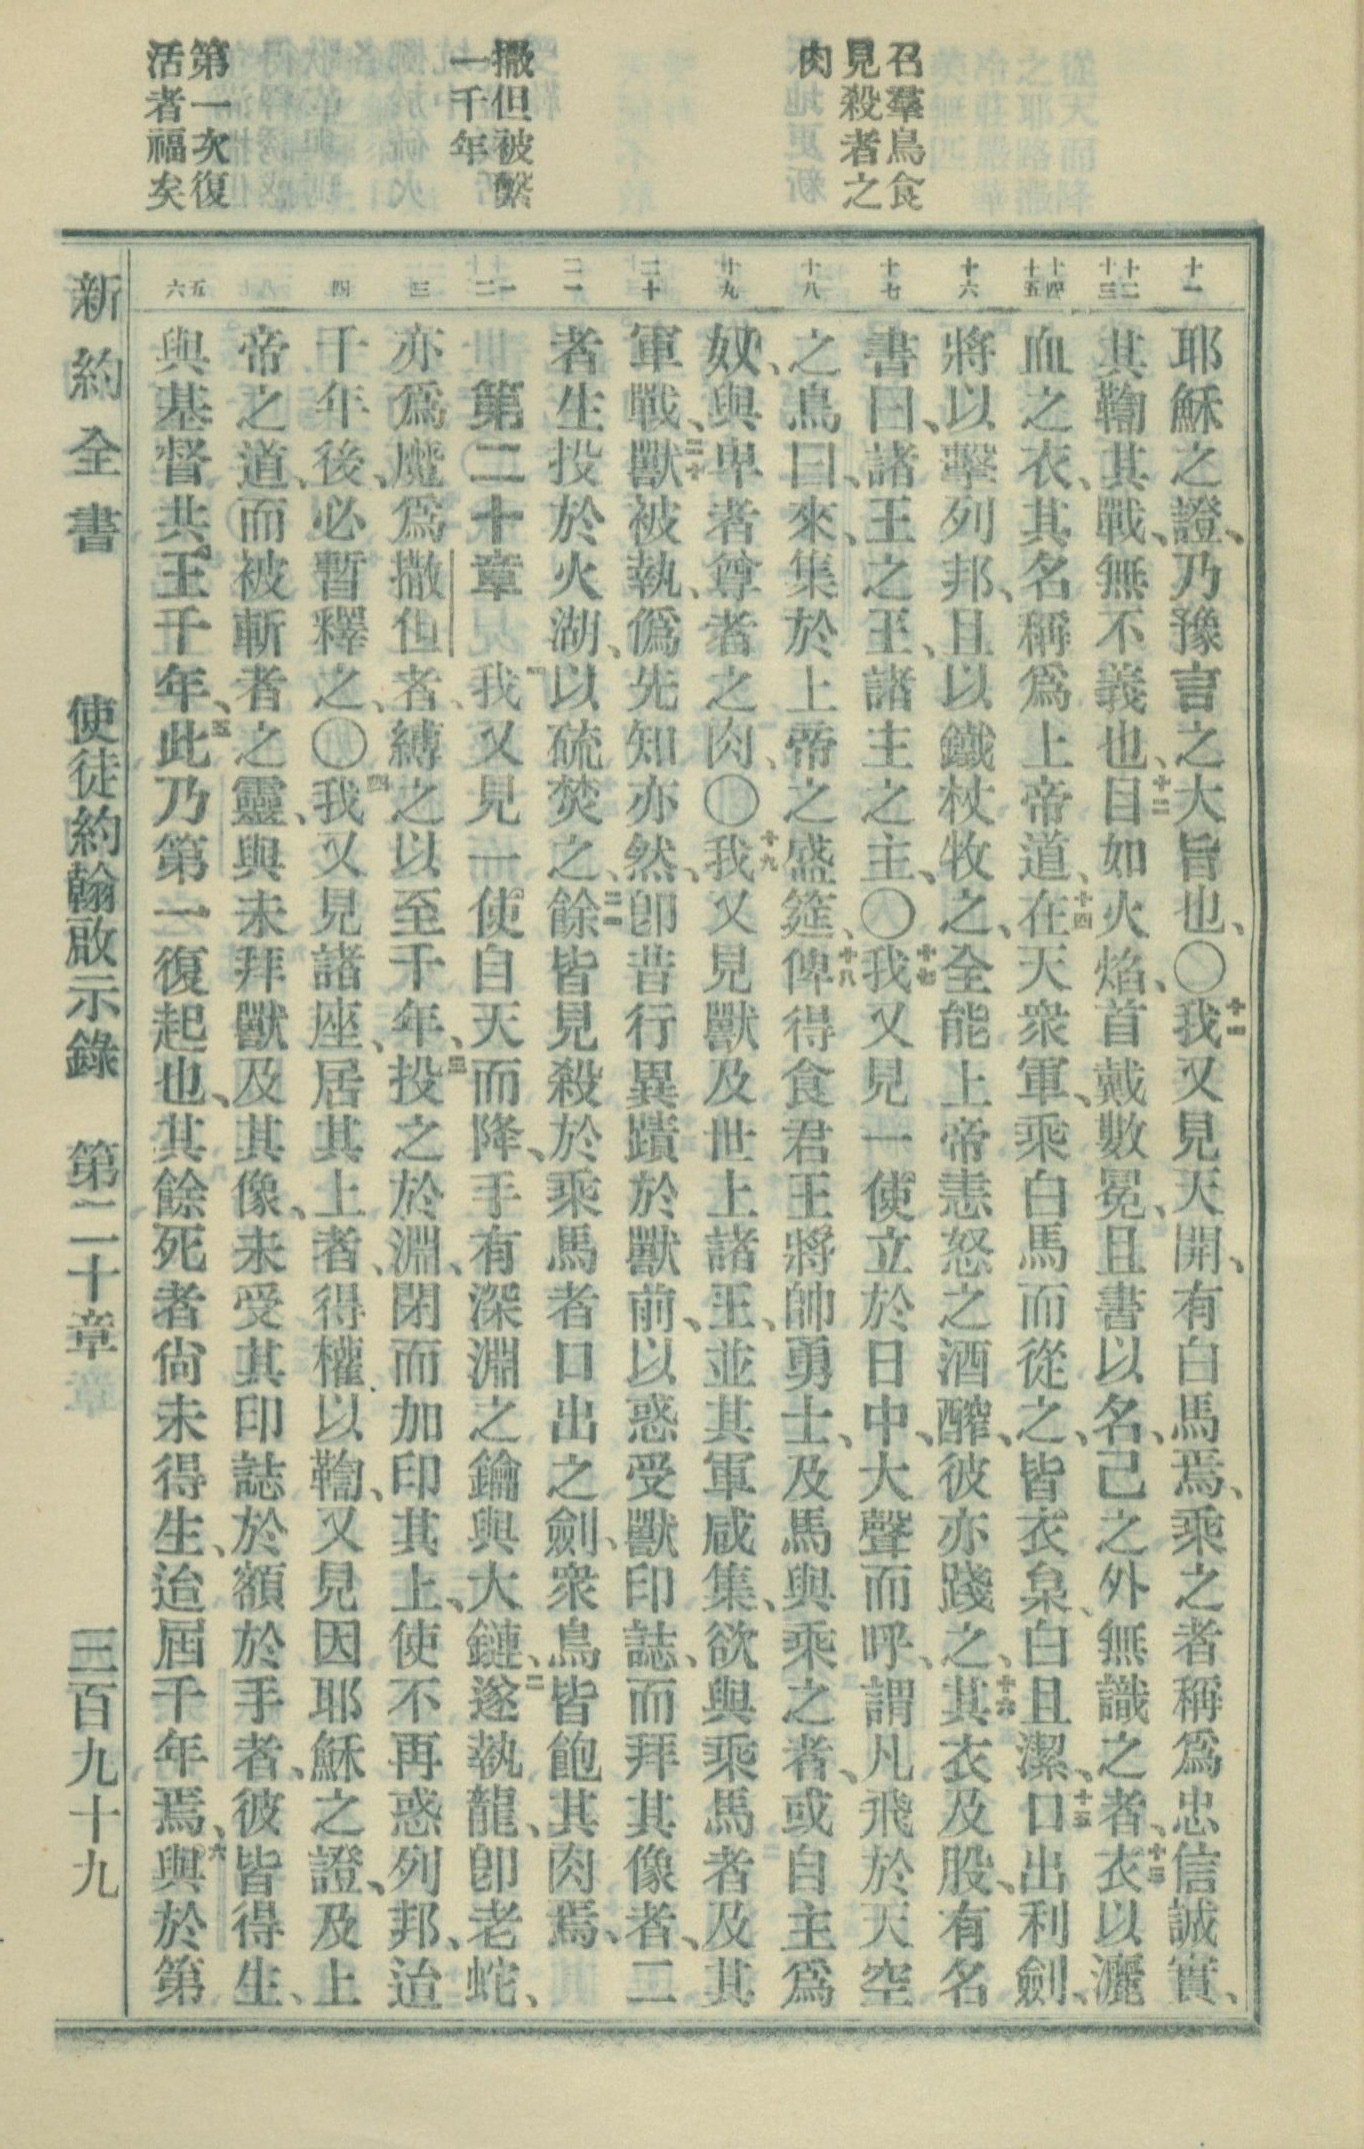 召羣鳥食
見殺者之
肉
撒但被繫
一千年
第一次復
活者福矣
十一
十二 十三
十四 十五
十六
十七
十八
十九
二十
二一
一 二
三
四
五 六
耶穌之證、乃豫言之大旨也、〇十一我又見天開、有白馬焉、乘之者稱爲忠信誠實、
其鞫其戰、無不義也、十二目如火焰、首戴數冕、且書以名、己之外無識之者、十三衣以灑
血之衣、其名稱爲上帝道、十四在天衆軍、乘白馬而從之、皆衣枲、白且潔、十五口出利劍、
將以擊列邦、且以鐵杖牧之、全能上帝恚怒之酒醡、彼亦踐之、十六其衣及股、有名
書曰、諸王之王、諸主之主、〇十七我又見一使立於日中、大聲而呼、謂凡飛於天空
之鳥曰、來、集於上帝之盛筵、十八俾得食君王將帥勇士、及馬與乘之者、或自主爲
奴、與卑者尊者之肉、〇十九我又見獸及世上諸王、並其軍咸集、欲與乘馬者及其
軍戰、二十獸被執、僞先知亦然、卽昔行異蹟於獸前、以惑受獸印誌、而拜其像者、二
者生投於火湖、以硫焚之、二一餘皆見殺於乘馬者口出之劍、衆鳥皆飽其肉焉、
第二十章 一我又見一使自天而降、手有深淵之鑰與大鏈、二遂執龍、卽老蛇、
亦爲魔爲撒但者、縛之以至千年、三投之於淵、閉而加印其上、使不再惑列邦、迨
千年後、必暫釋之、〇四我又見諸座、居其上者、得權以鞫、又見因耶穌之證、及上
帝之道、而被斬者之靈、與未拜獸及其像、未受其印誌於額於手者、彼皆得生、
與基督共王千年、五此乃第一復起也、其餘死者尙未得生、迨屆千年焉、六與於第
新約全書 使徒約翰啟示錄 第二十章 三百九十九